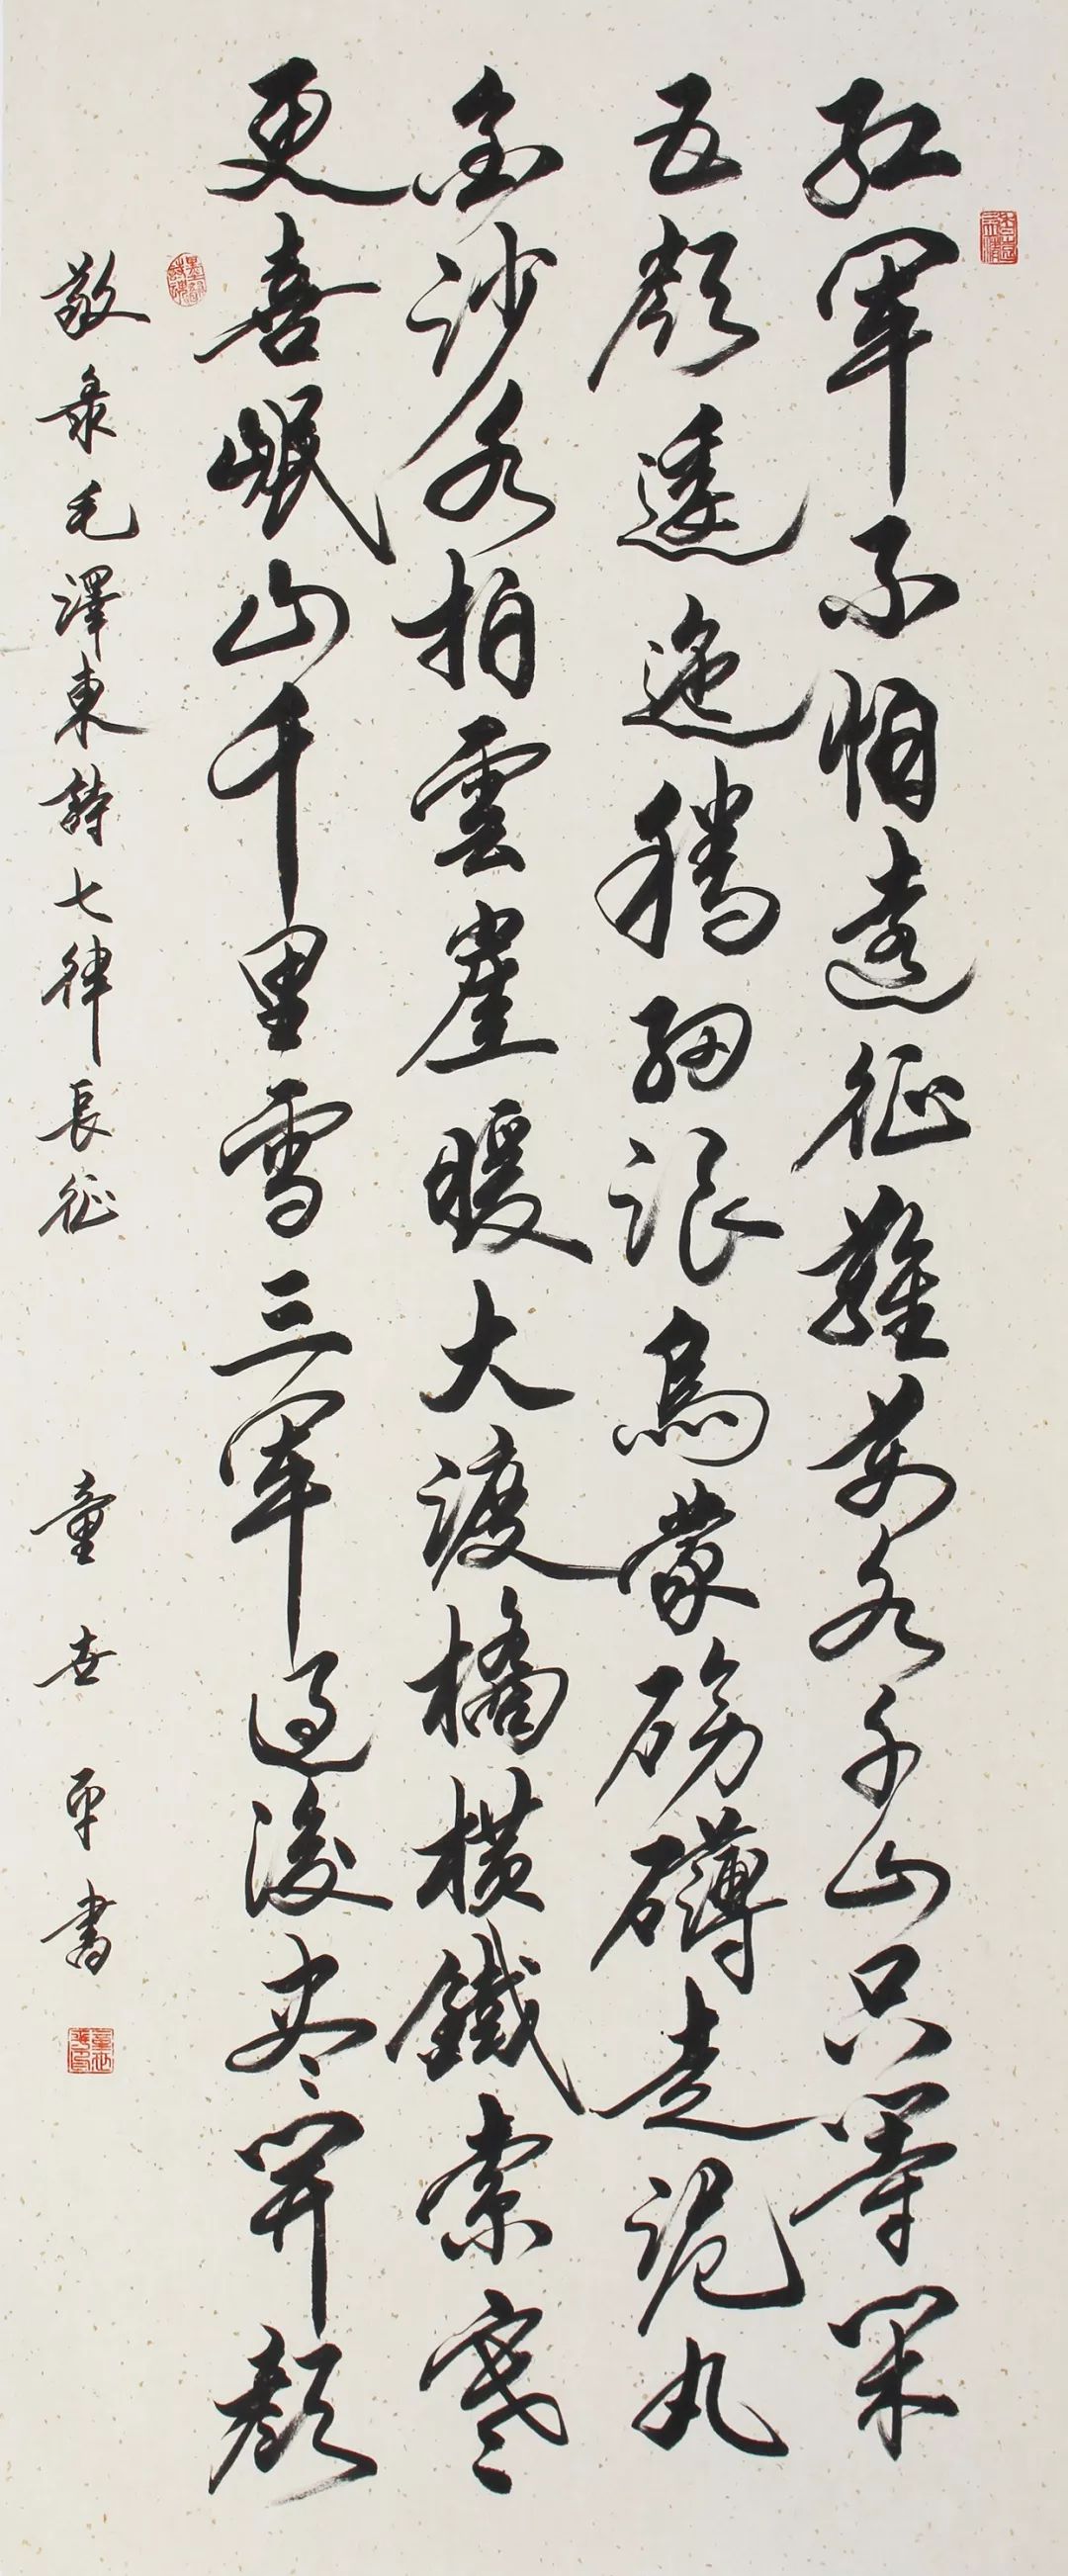 红军不怕远征難萬水千山只等闲
五嶺逶迤腾细浪烏蒙磅礴走泥丸
金沙水拍雲崖暖大渡橋横鐵索寒
更喜岷山千里雪三军过後尽開顏
敬录毛澤東詩七律長征 童世平書